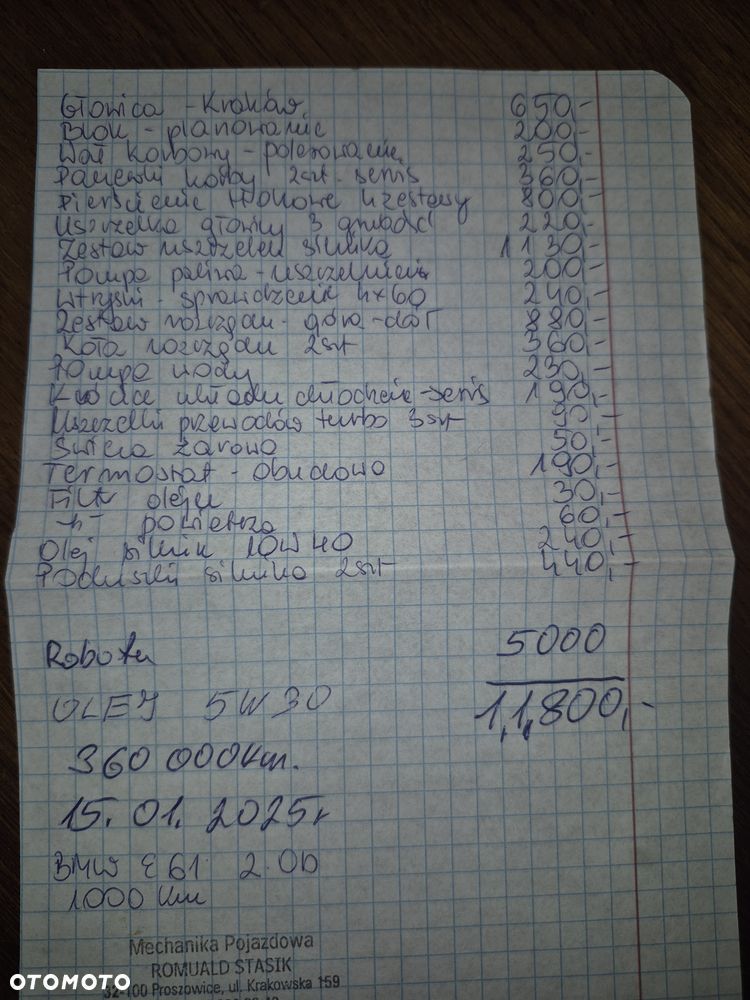 Głowica - Kraków 650,-
Blok - planowanie 200,-
Wał korbowy - polerowanie 250,-
Panewki korby 2szt - semis 360,-
Pierścienie tłokowe 4 zestawy 800,-
Uszczelka głowicy 3 grubość 220,-
Zestaw uszczelek silnika 1130,-
Pompa paliwa - uszczelnienie 200,-
Wtryski - sprawdzenie 4x60 240,-
Zestaw rozrządu - góra - dół 880,-
Koła rozrządu 2szt 360,-
Pompa wody 230,-
układu chłodzenia - serwis 190,-
Uszczelki przewodów turbo 3szt 90,-
Świeca żarowa 50,-
Termostat - obudowa 190,-
Filtr oleju 30,-
-"- powietrza 60,-
Olej silnik 10W40 240,-
Poduszki silnika 2szt 440,-
Robota 5000
OLEJ 5W30 11,800,-
360 000km.
15.01.2025r
BMW E61 2.0D
1000 km
Mechanika Pojazdowa
ROMUALD STASIK
32-100 Proszowice, ul. Krakowska 159
OTOMOTO